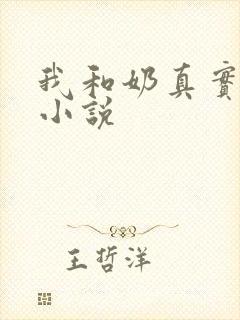 我和奶真實
小說
王哲洋